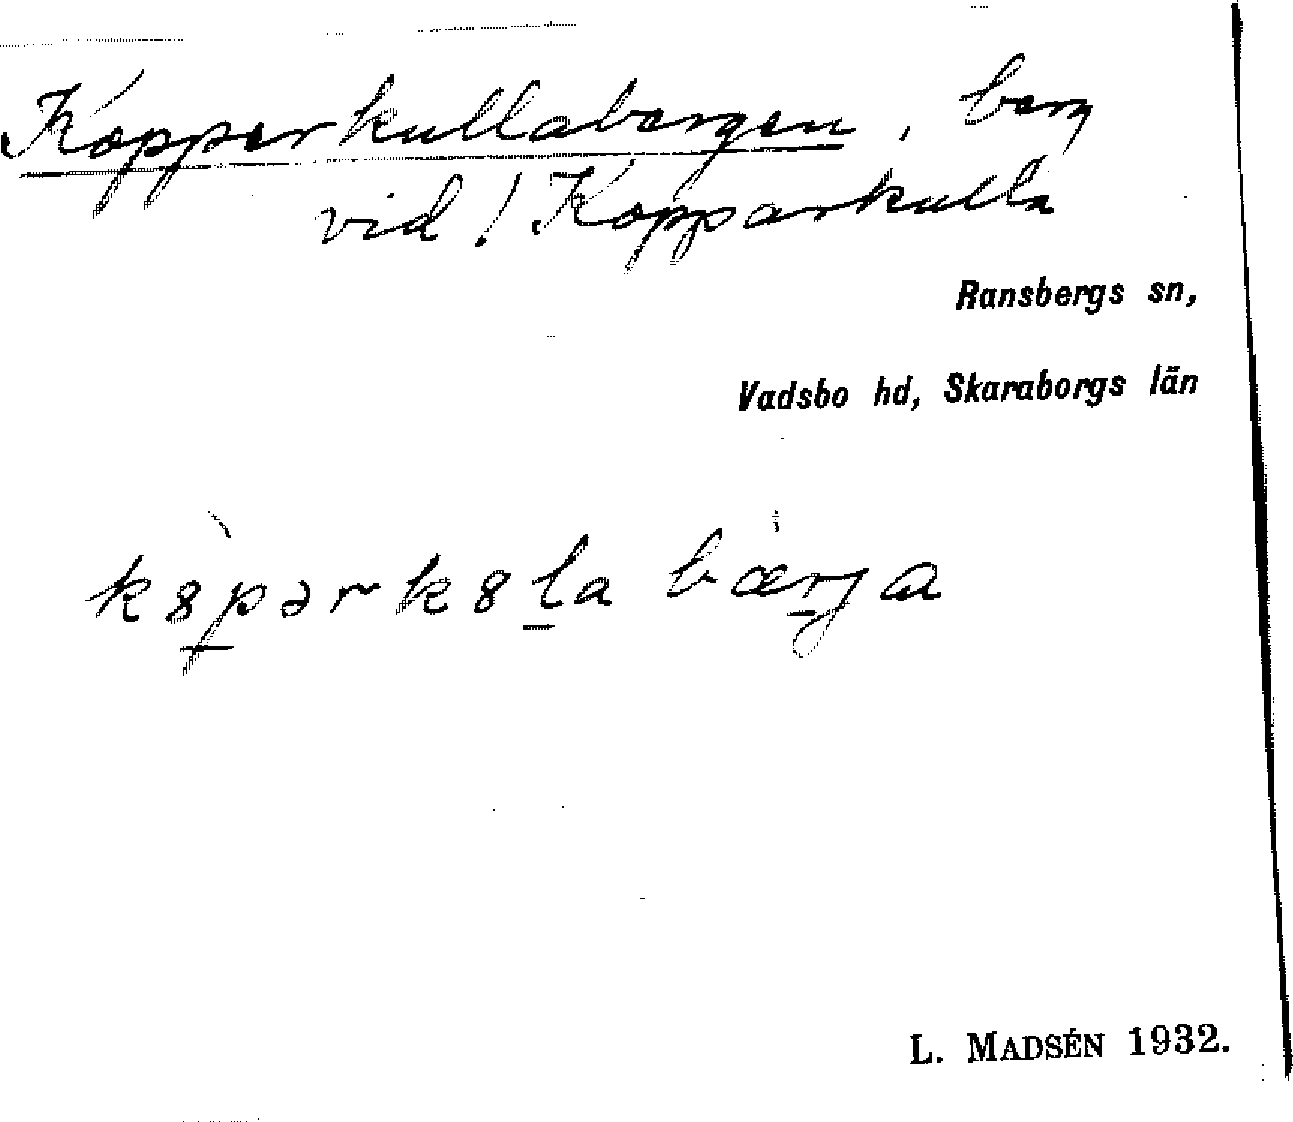 Kopparkullabergen, berg
vid ! Kopparkulla
Ransbergs sn,
Vadsbo hd, Skaraborgs län
k8̀pərk8la bærja
L. MADSÉN 1932.